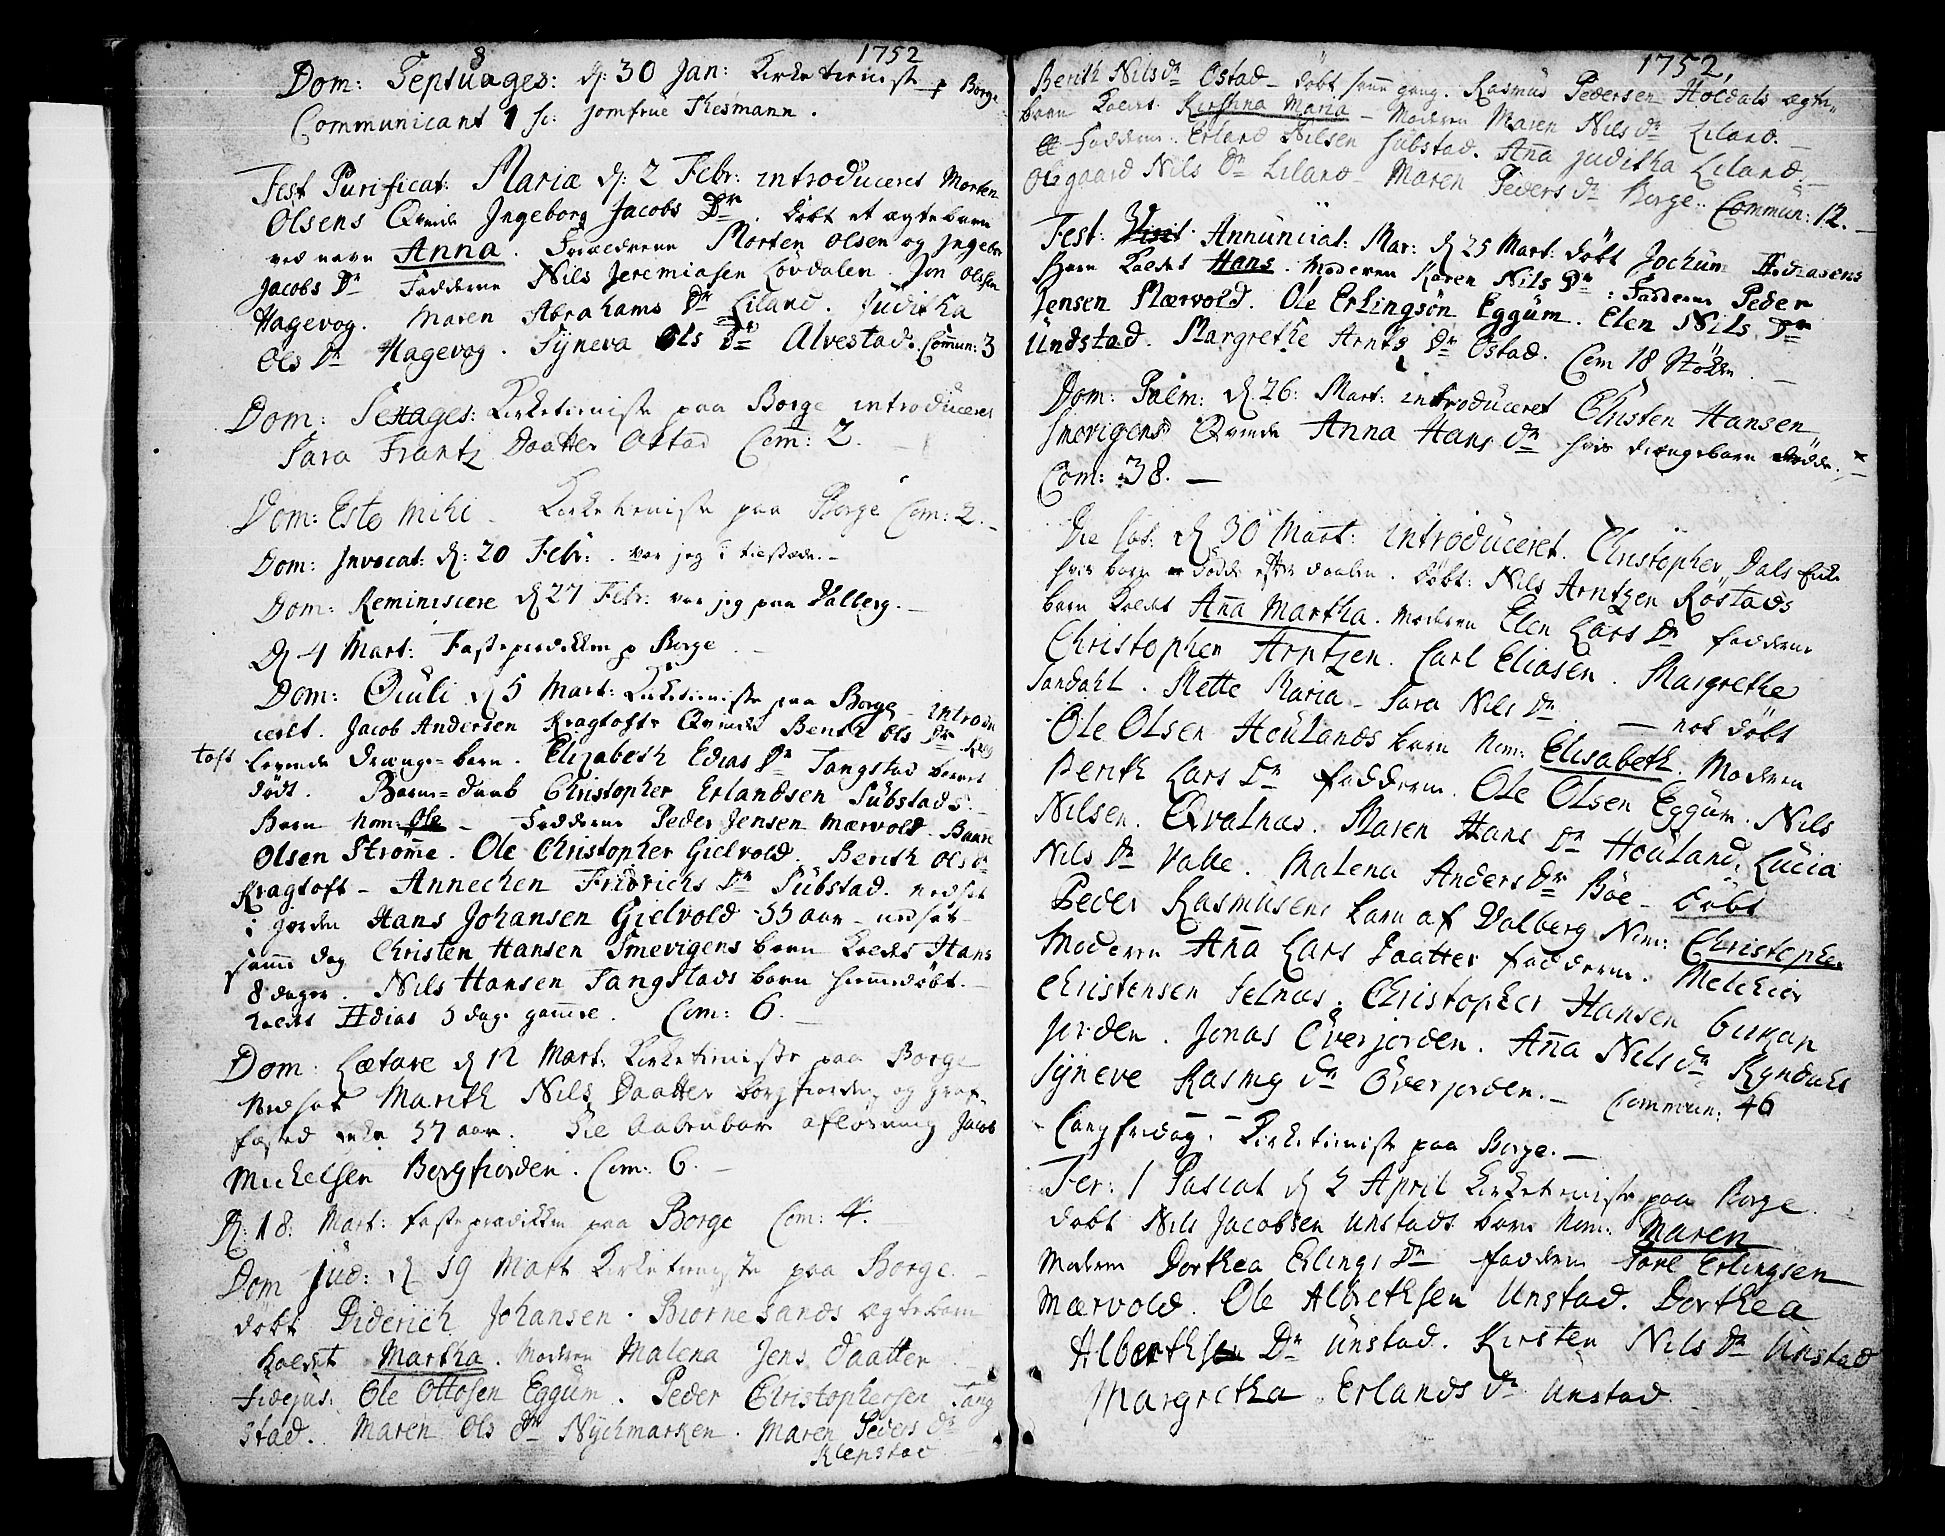 8
1752
Dom: Septuages: d: 30 Jan: Kirketieniste p Borge
Communicant 1 sc: jomfrue Thesmann.
Fest Purificat: Mariæ d: 2 Febr: introduceret Morten
Olsens Qvinde Ingeborg Jacobs Dr. Döbt et ægte barn
ved navn Anna. Forældrene Morten Olsen og Ingebor
Jacobs Dr Fadderne Nils Jeremiasen Lövdalen. Jon Olssen
Hagevog. Maren Abrahams Dr Liland. Juditha
Ols Dr Hagevog. Syneva Ols Dr Alvestad. Commun: 3
Dom: Sexages: Kirketieniste paa Borge introduceret
Sara Frantz Daatter Ostad Com: 2.
Dom: Esto mihi Kirketieniste paa Borge Com: 2.
Dom: Invocat: d: 20 Febr: var jeg i
Dom: Reminiscere d 27 Febr: var jeg paa Valberg.
d 4 Mart: Fasteprædiken p Borge
Dom: Oculi d 5 Mart: Kirketieniste paa Borge introdu
ceret. Jacob Andersen Kragtofts Qvinde Berith Ols Dr
toft levende drænge-barn. Elizabeth Edias Dr Tangstad barnet
dödt. Barne-daab Christopher Erlandsen Substads
Barn Nom: Ole Fadderne Peder Jensen Mærvold.
Olsen Strømme. Ole Christopher Gielvold. Berith Ols dr
Kragtoft - Annechen Fridrichs Dr Substad. nedsat
i jorden Hans Johansen Gielvold 55 aar - nedsat
samme dag Christen Hansen Smevigens barn kaldet Hans
8 dager. Nils Hansen Tangstads barn hiemmedöbt.
kaldet Hdias 5 dage gammel. Com: 6.
Dom: Lætare d 12 Mart: Kirketieniste paa Borge
Nedsat Marith Nils Daatter Borgfiorden, og
57 aar. afløsning Jacob
Michelsen Borgfiorden. Com: 6.
d: 18: Mart: fasteprædiken paa Borge Com: 4.
Dom Jud: d 19 Mart Kirketieniste paa Borge
döbt Diderich Johansen. Biörnesands ægtebarn
kaldet Martha. Moderen Malena Jens Daatter
Fidejus: Ole Ottosen Eggum. Peder Christophersen Tang
stad. Maren Ols Dr Nychmarken. Maren Peders Dr
Klepstad
1752,
Berith Nilsdr Ostad - döbt samme gang. Rasmus Pedersen Holdals ægte
barn kaldet. Kirstina Maria - Moderen Maren Nils dr Liland.
Fadderne. Erland Nilsen Substad. Anna Juditha Liland.
Olegaard Nils Dr Liland Maren Peders Dr Borge. Commun: 12.
Fest: Visit Annunciat: Mar: d 25 Mart: döbt Jochum Hdiasens
Barn kaldet Hans. Moderen Karen Nils Dr: Fadderne Peder
Jensen Mærvold. Ole Erlingsön Eggum. Elen Nils Dr
Undstad. Margrethe Arnts Dr Ostad. Com 18
Dom: Palm: d. 26: Mart: introduceret Christen Hansen
Smevigens Qvinde Anna Hans Dr hvis drængebarn dödde.
Com: 38.
d 30 Mart: introduceret. Christopher Dals
hvis barn dödde efter daaben. döbt: Nils Arntzen Röstads
barn kaldet Anna Martha. Moderen Elen Lars Dr fadderne
Christopher Arntzen. Carl Eliasen. Margrethe
Sandahl. Mette Maria - Sara Nils Dr. - nok döbt
Ole Olsen Houlands barn Nom: Elisabeth. Moderen
Berith Lars Dr fadderne. Ole Olsen Eggum. Nils
Nilsen. Qvalnæs. Maren Hans Dr Houland. Lucia
Nils Dr Valle. Malena Anders Dr Böe - döbt
Peder Rasmusens barn af Valberg Nom: Christopher
Moderen Anna Lars Daatter fadderne. Melchior
Christensen Selnæs. Christopher Hansen
jorden. Jonas Överjorden. Anna Nils dr Ryndahl
Syneve Rasmg dr Överjorden. - Commun: 46
Langfredag. Kirketieniste paa Borge.
Fer: 1 Pascat d 2 April Kirketieniste paa Borge.
döbt Nils Jacobsen Unstads barn Nom: Maren
Moderen Dorthea Erlings Dr Fadderne Tore Erlingsen
Mærvold. Ole Albrethsen Unstad. Dorthea
Alberths Dr Unstad. Kirsten Nils Dr Unstad
Margretha Erlands Dr Unstad.